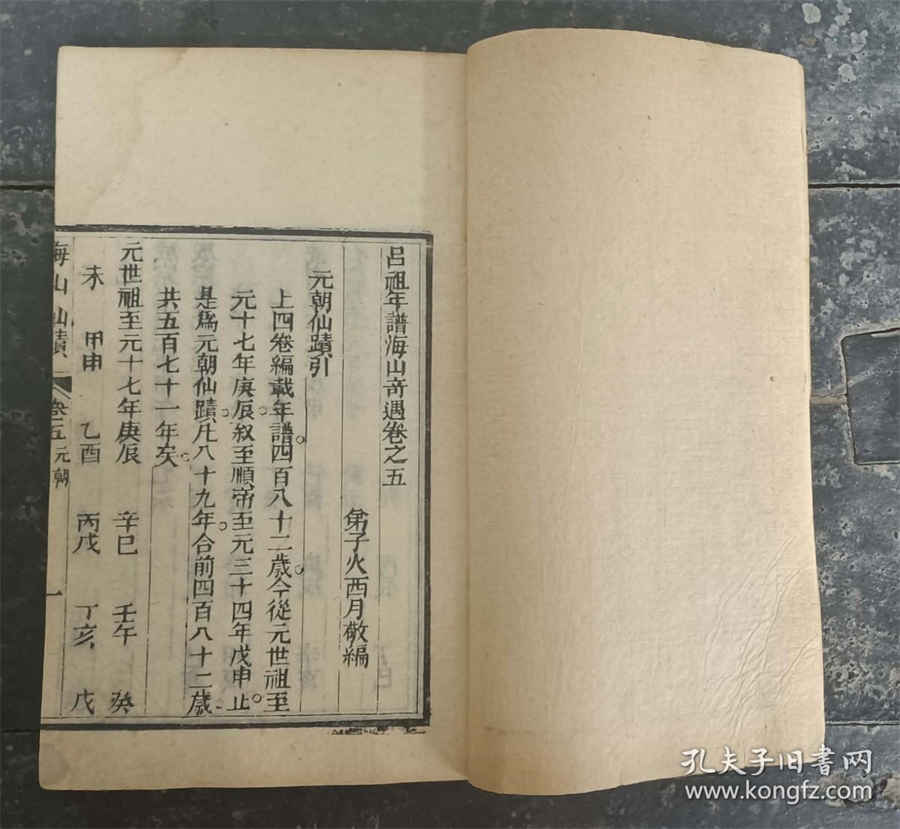 呂祖年譜海山奇遇卷之五
弟子火西月敬編
元朝仙蹟引
上四卷編載年譜四百八十二歲今從元世祖至
元十七年庚辰敘至順帝至元三十四年戊申止
是爲元朝仙蹟凡八十九年合前四百八十二歲
共五百七十一年矣
元世祖至元十七年庚辰 辛巳 壬午 癸
未 甲申 乙酉 丙戌 丁亥 戊
海山仙蹟 卷五 元朝 一
孔夫子旧书网
www.kongfz.com